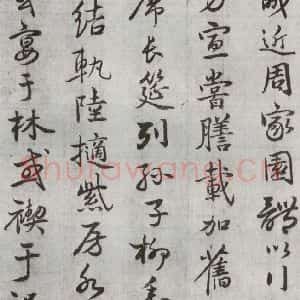 畿近周家園體以行
宣嘗膳載加舊
席長筵列孫子柳垂
結軌陸摘紫房水
宴于林或禊于
Shufawang.CN